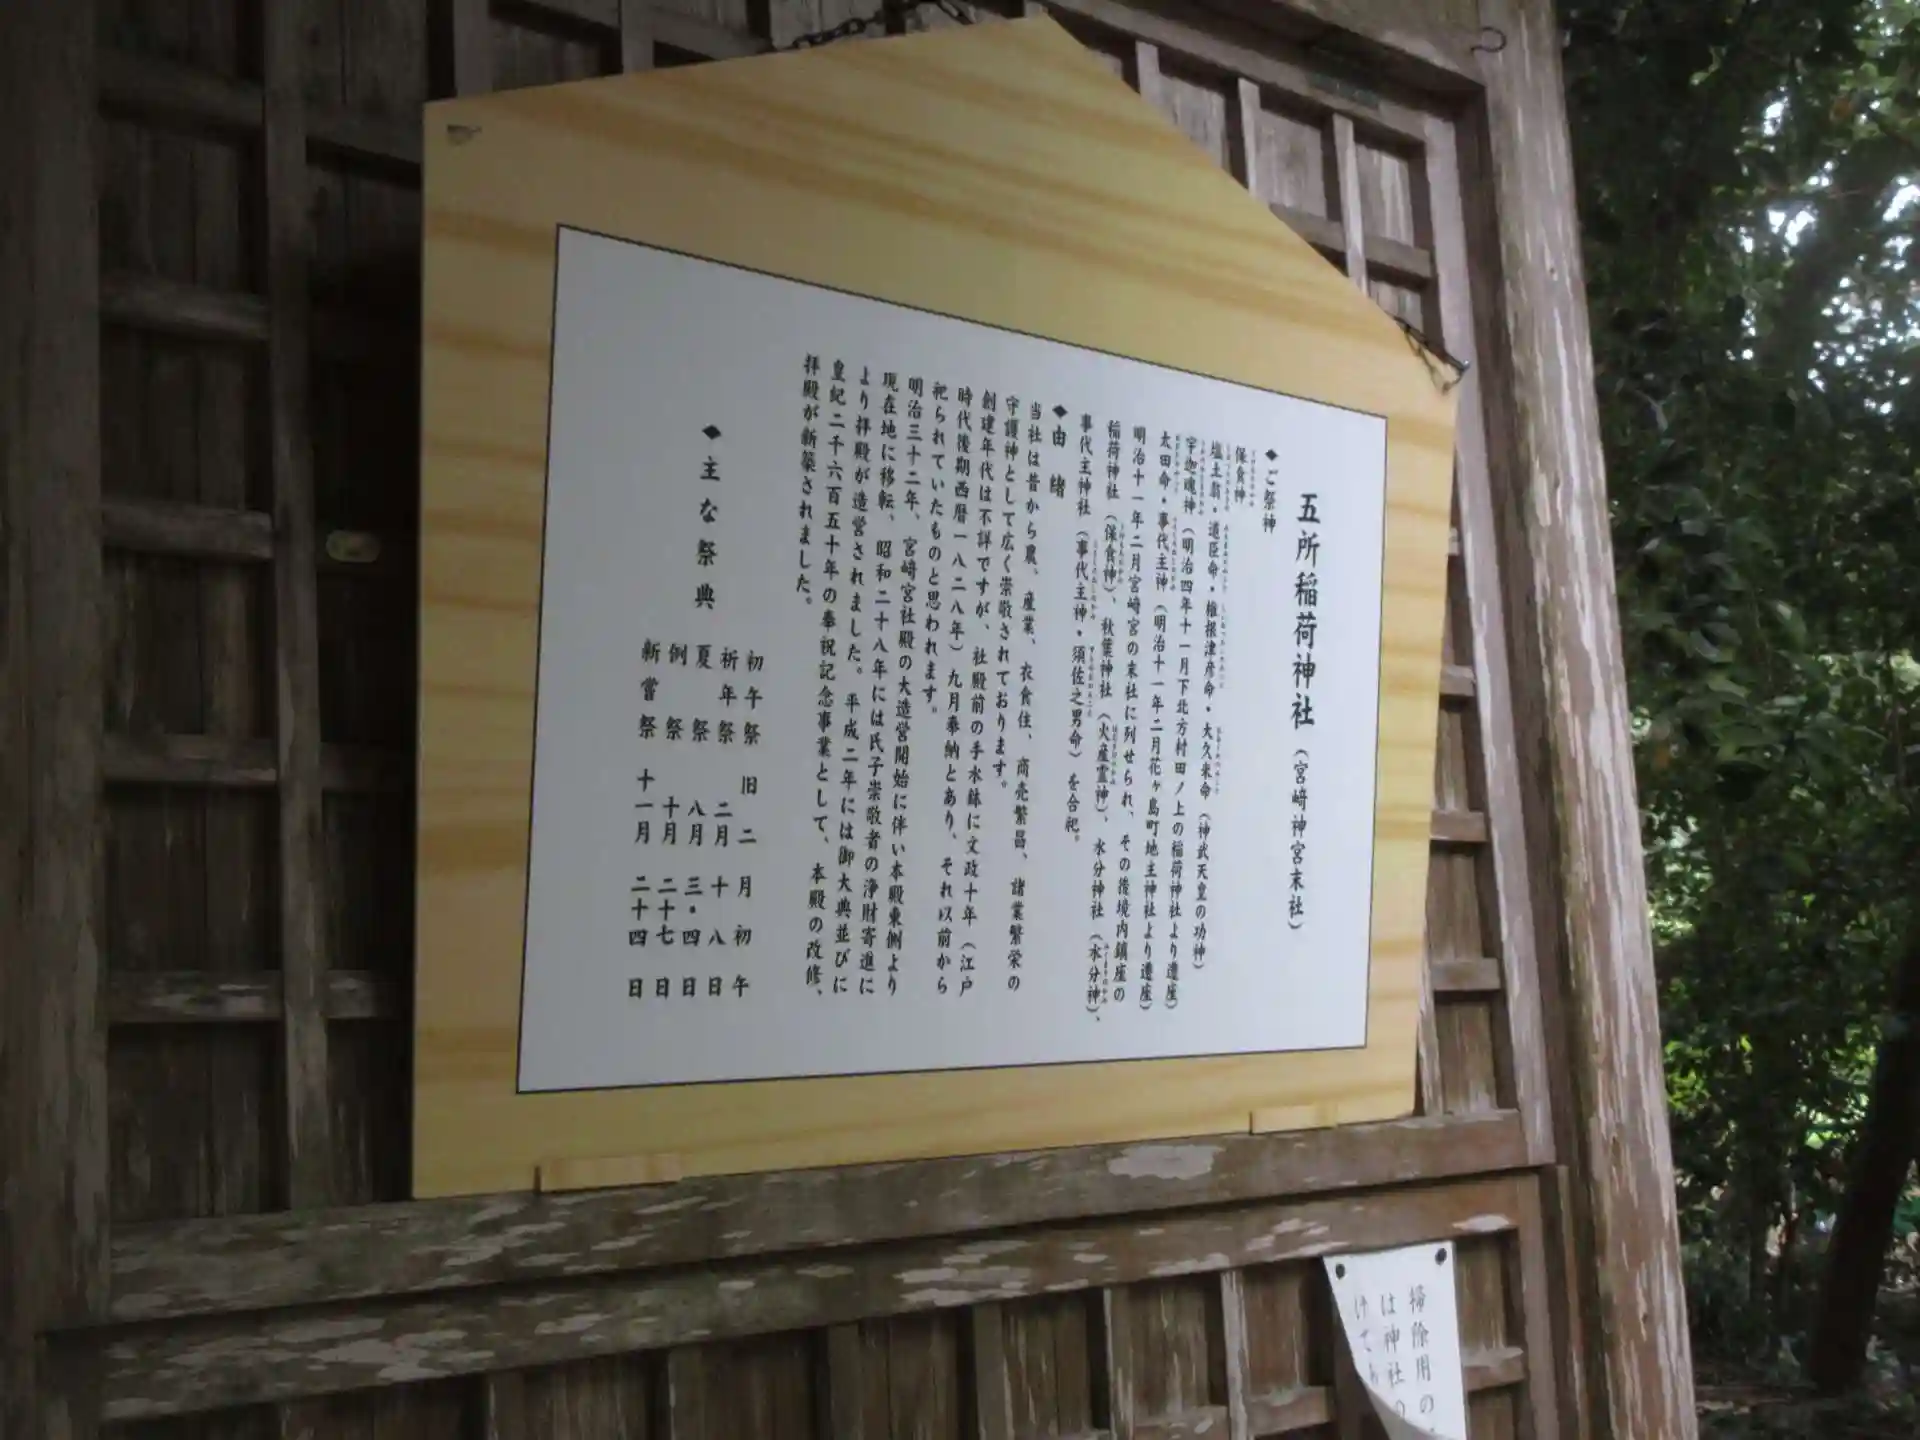 五所稲荷神社（宮﨑神宮末社）
◆ご祭神
保食神
塩土翁・道臣命・椎根津彦命・大久米命（神武天皇の功神）
宇迦魂神（明治四年十一月下北方村田ノ上の稲荷神社より遷座）
太田命・事代主神（明治十一年二月花ヶ島町地主神社より遷座）
明治十一年二月宮崎宮の末社に列せられ、その後境内鎮座の
稲荷神社（保食神）、秋葉神社（火産霊神）、水分神社（水分神）、
事代主神社（事代主神・須佐之男命）を合祀。
◆由　緒
当社は昔から農、産業、衣食住、商売繁昌、諸業繁栄の
守護神として広く崇敬されております。
創建年代は不詳ですが、社殿前の手水鉢に文政十年（江戸
時代後期西暦一八二八年）九月奉納とあり、それ以前から
祀られていたものと思われます。
明治三十二年、宮﨑宮社殿の大造営開始に伴い本殿東側より
現在地に移転、昭和二十八年には氏子崇敬者の浄財寄進に
より拝殿が造営されました。平成二年には御大典並びに
皇紀二千六百五十年の奉祝記念事業として、本殿の改修、
拝殿が新築されました。
◆主な祭典
初午祭　旧二月初午
祈年祭　二月十八日
夏祭　八月三・四日
例祭　十月二十七日
新嘗祭　十一月二十四日
掃除用の
は神社の
けて